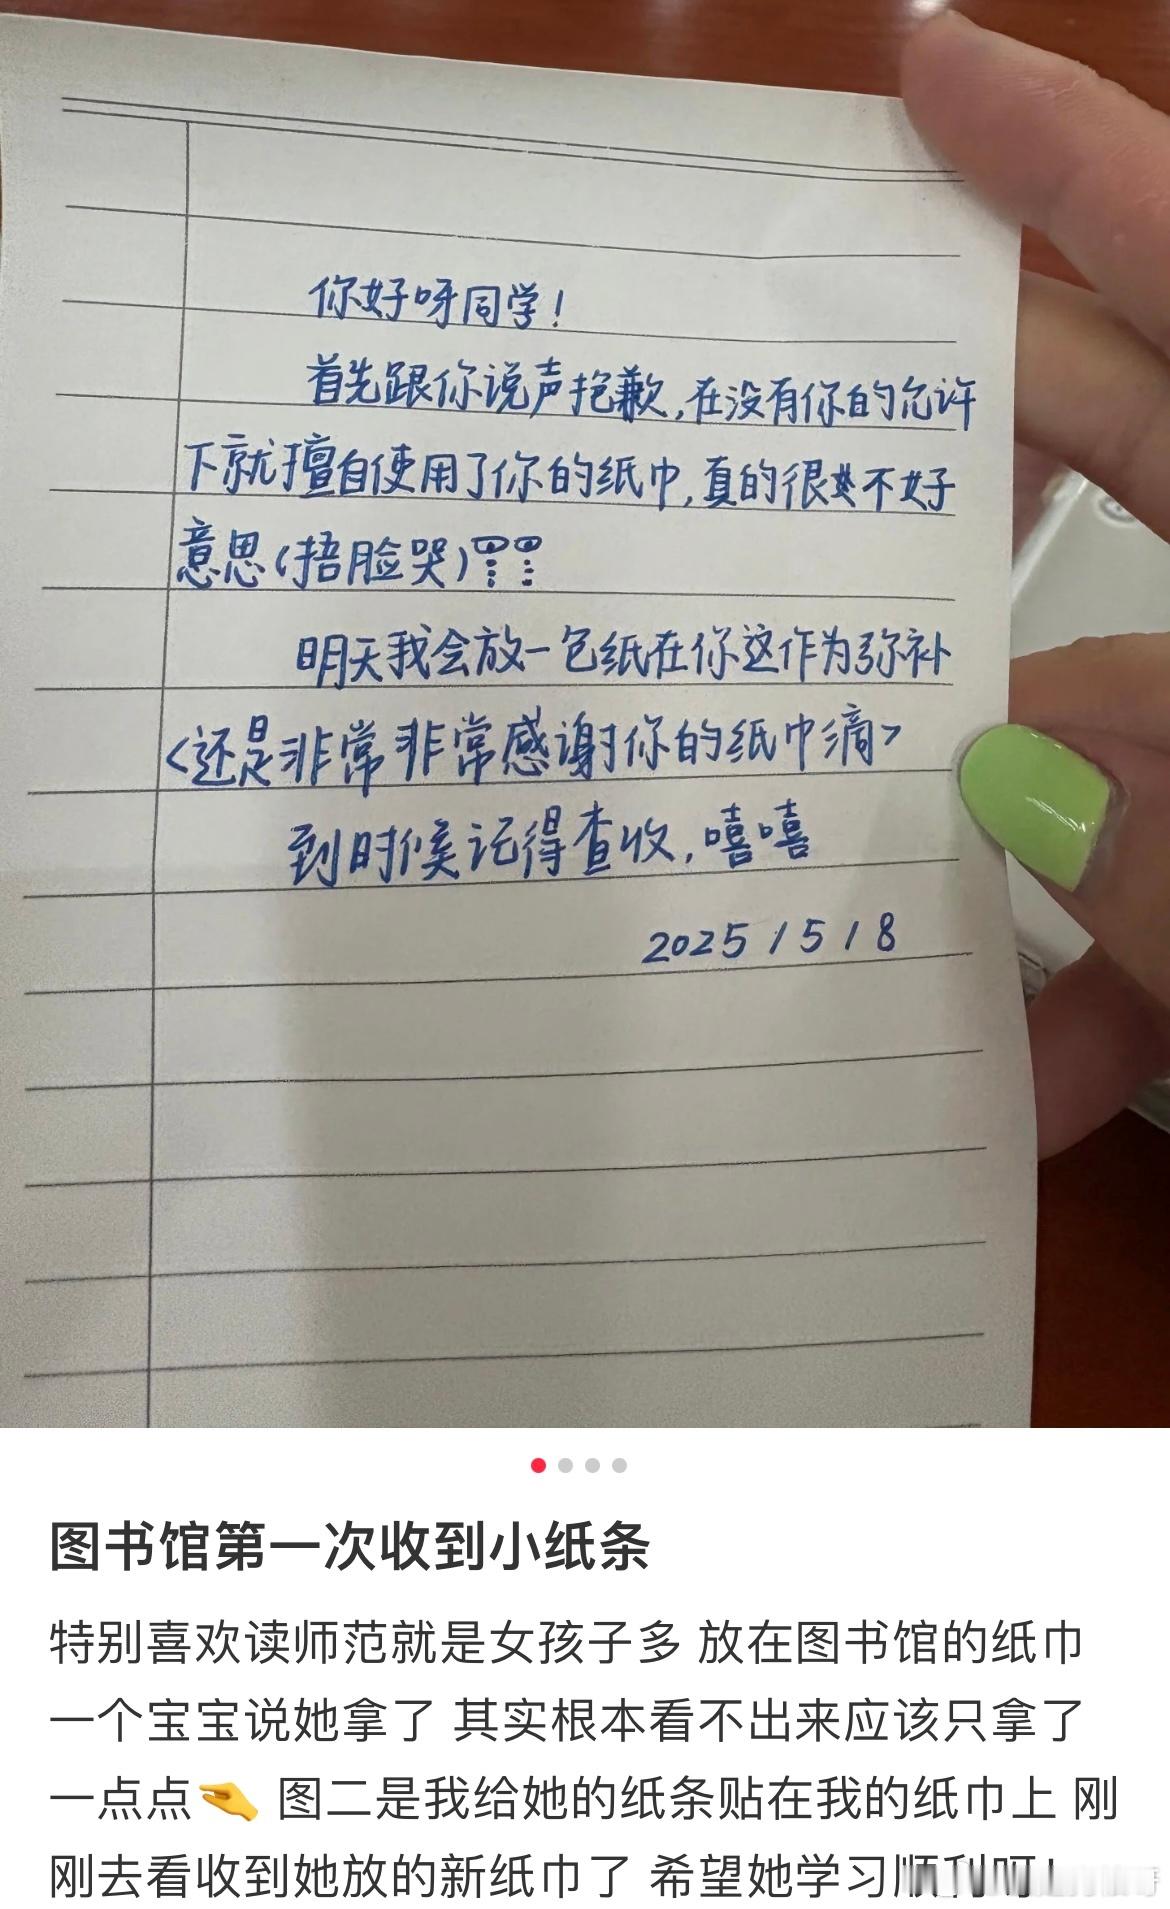 你好呀同学!
首先跟你说声抱歉,在没有你的允许
下就擅自使用了你的纸巾,真的很不好
意思(捂脸哭)
明天我会放一包纸在你这作为弥补
<还是非常非常感谢你的纸巾滴>
到时候记得查收,嘻嘻
2025/5/8
图书馆第一次收到小纸条
特别喜欢读师范就是女孩子多 放在图书馆的纸巾
一个宝宝说她拿了 其实根本看不出来应该只拿了
一点点🤏 图二是我给她的纸条贴在我的纸巾上 刚
刚去看收到她放的新纸巾了 希望她学习顺利呵!